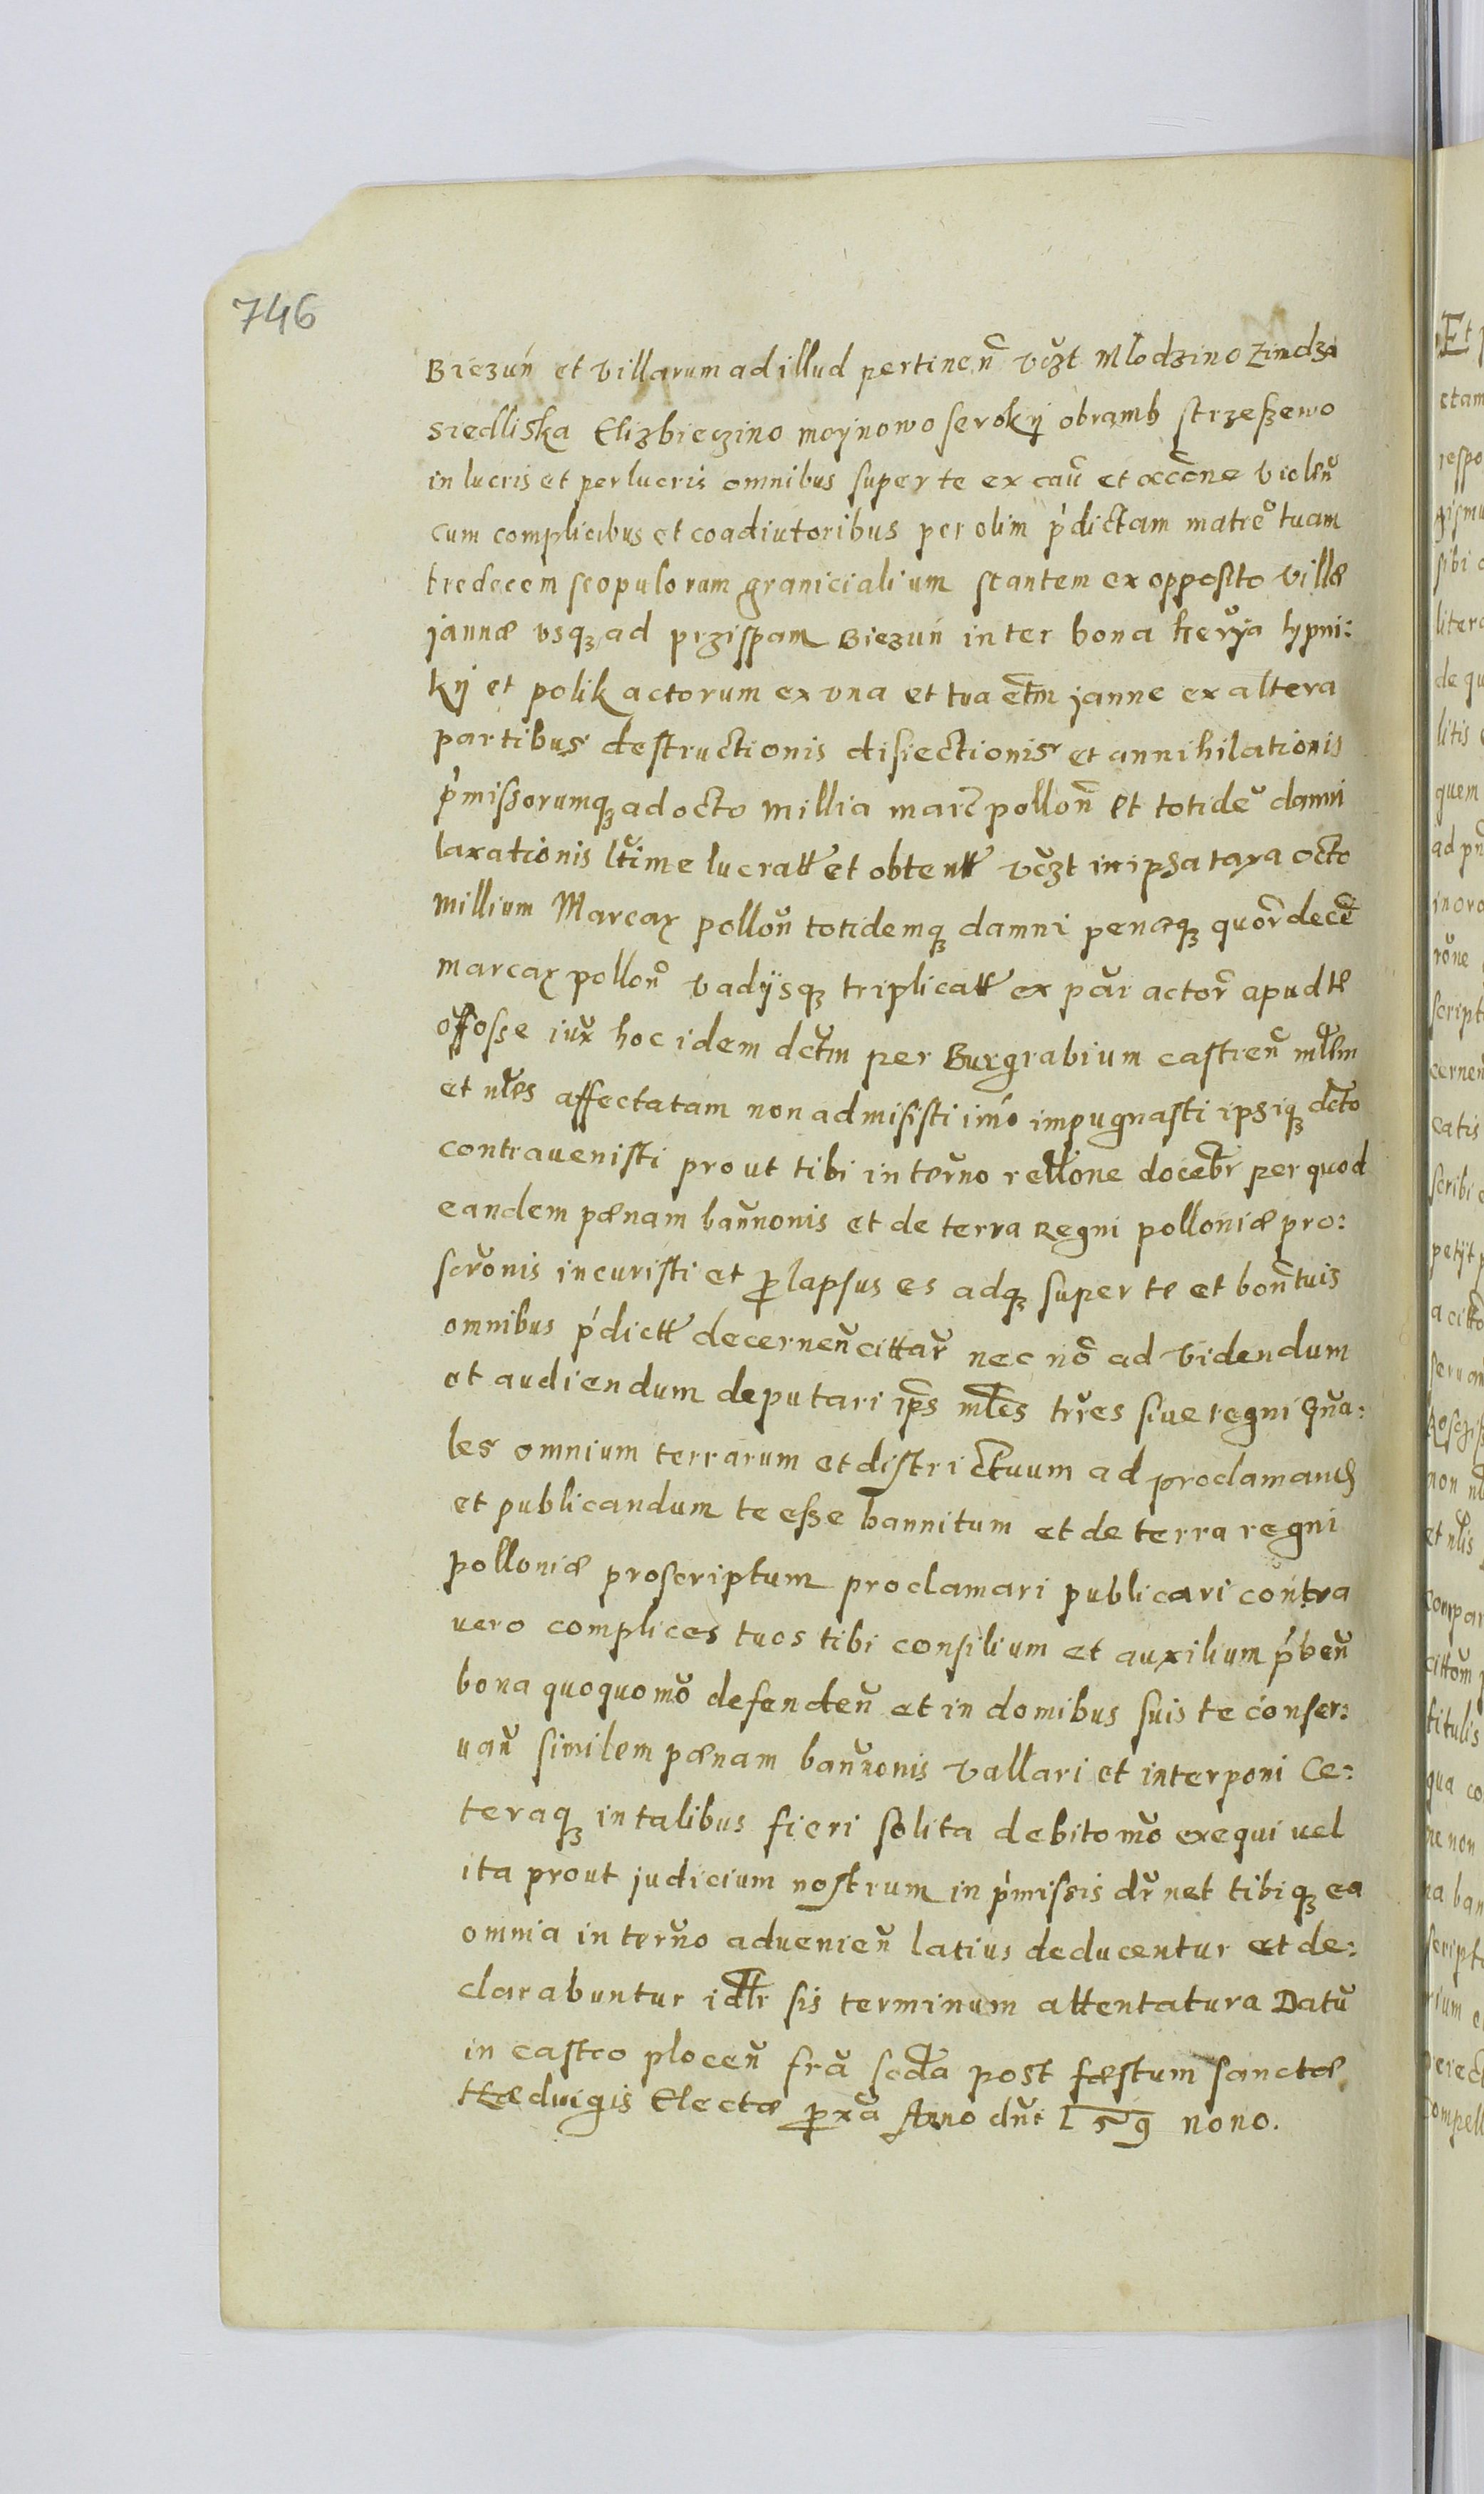 746
Biezuń et villarum ad illud pertinen̄ vc̆zt Mlodzino Zindza
Siedliska Elizbieczino moynowo serokij obramb strzeßewo
in lucris et perlucris omnibus super te ex cau̇ et occōne violen̆
cum complicibus et coadiutoribus per olim p'dictam matrĕ tuam
tredecem scopulorum granicialium stantem ex opposito villæ
jannæ vsqꝫ ad przispam Biezuń inter bona Kerya lypni:
kÿ et polik actorum ex vna et tua etm̄ janne ex altera
partibus destructionis disiectionis et annihilationis
p'missorumqꝫ ad octo millia marc̄ pollon̄ et totidĕ damni
taxationis ltĭme lucratt et obtentt vc̆zt in ipsa taxa octo
millium Marcaꝝ pollon̆ totidemqꝫ damni penaqꝫ quor̄ decē
marcaꝝ pollon̆ vadijsqꝫ triplicatt ex păr actor̄ apud te
offosse iux̆ hoc idem dctm̆ per Burgrabium castren̆ mtl̃m
et ntl̃es affectatam non admisisti imo impugnasti ipsiqꝫ dcto
contrauenisti prout tibi in tern̆o rellōne docebr̃ per quod
eandem pænam bann̆onis et de terra Regni polloniæ pro:
scrŏnis incuristi et ꝑlapsus es adqꝫ super te et bon̄ tuis
omnibus p'dictt decernen̆ cittar̆ nec nō ad videndum
et audiendum deputari ip̄s mtl̃es trr̆es siue regni gn̆a:
les omnium terrarum et districtuum ad proclamand̃
et publicandum te esse bannitum et de terra regni
polloniæ proscriptum proclamari publicari contra
uero complices tuos tibi consilium et auxilium p'ben̆
bona quoquomŏ defenden̆ et in domibus suis te conser:
uan̆ similem pænam bann̆onis vallari et interponi Ce:
teraqꝫ in talibus fieri solita debitomŏ exequi uel
ita prout judicium nostrum in p'missis dr̆net tibiqꝫ ea
omnia in tern̆o aduenien̆ latius deducentur et de:
clarabuntur idt̃r sis terminum attentatura Datŭ
in castro plocen̆ fr̆a scda post fæstum sanctæ
Hæduigis Electæ ꝑxa̍ Anno dni 159 nono.